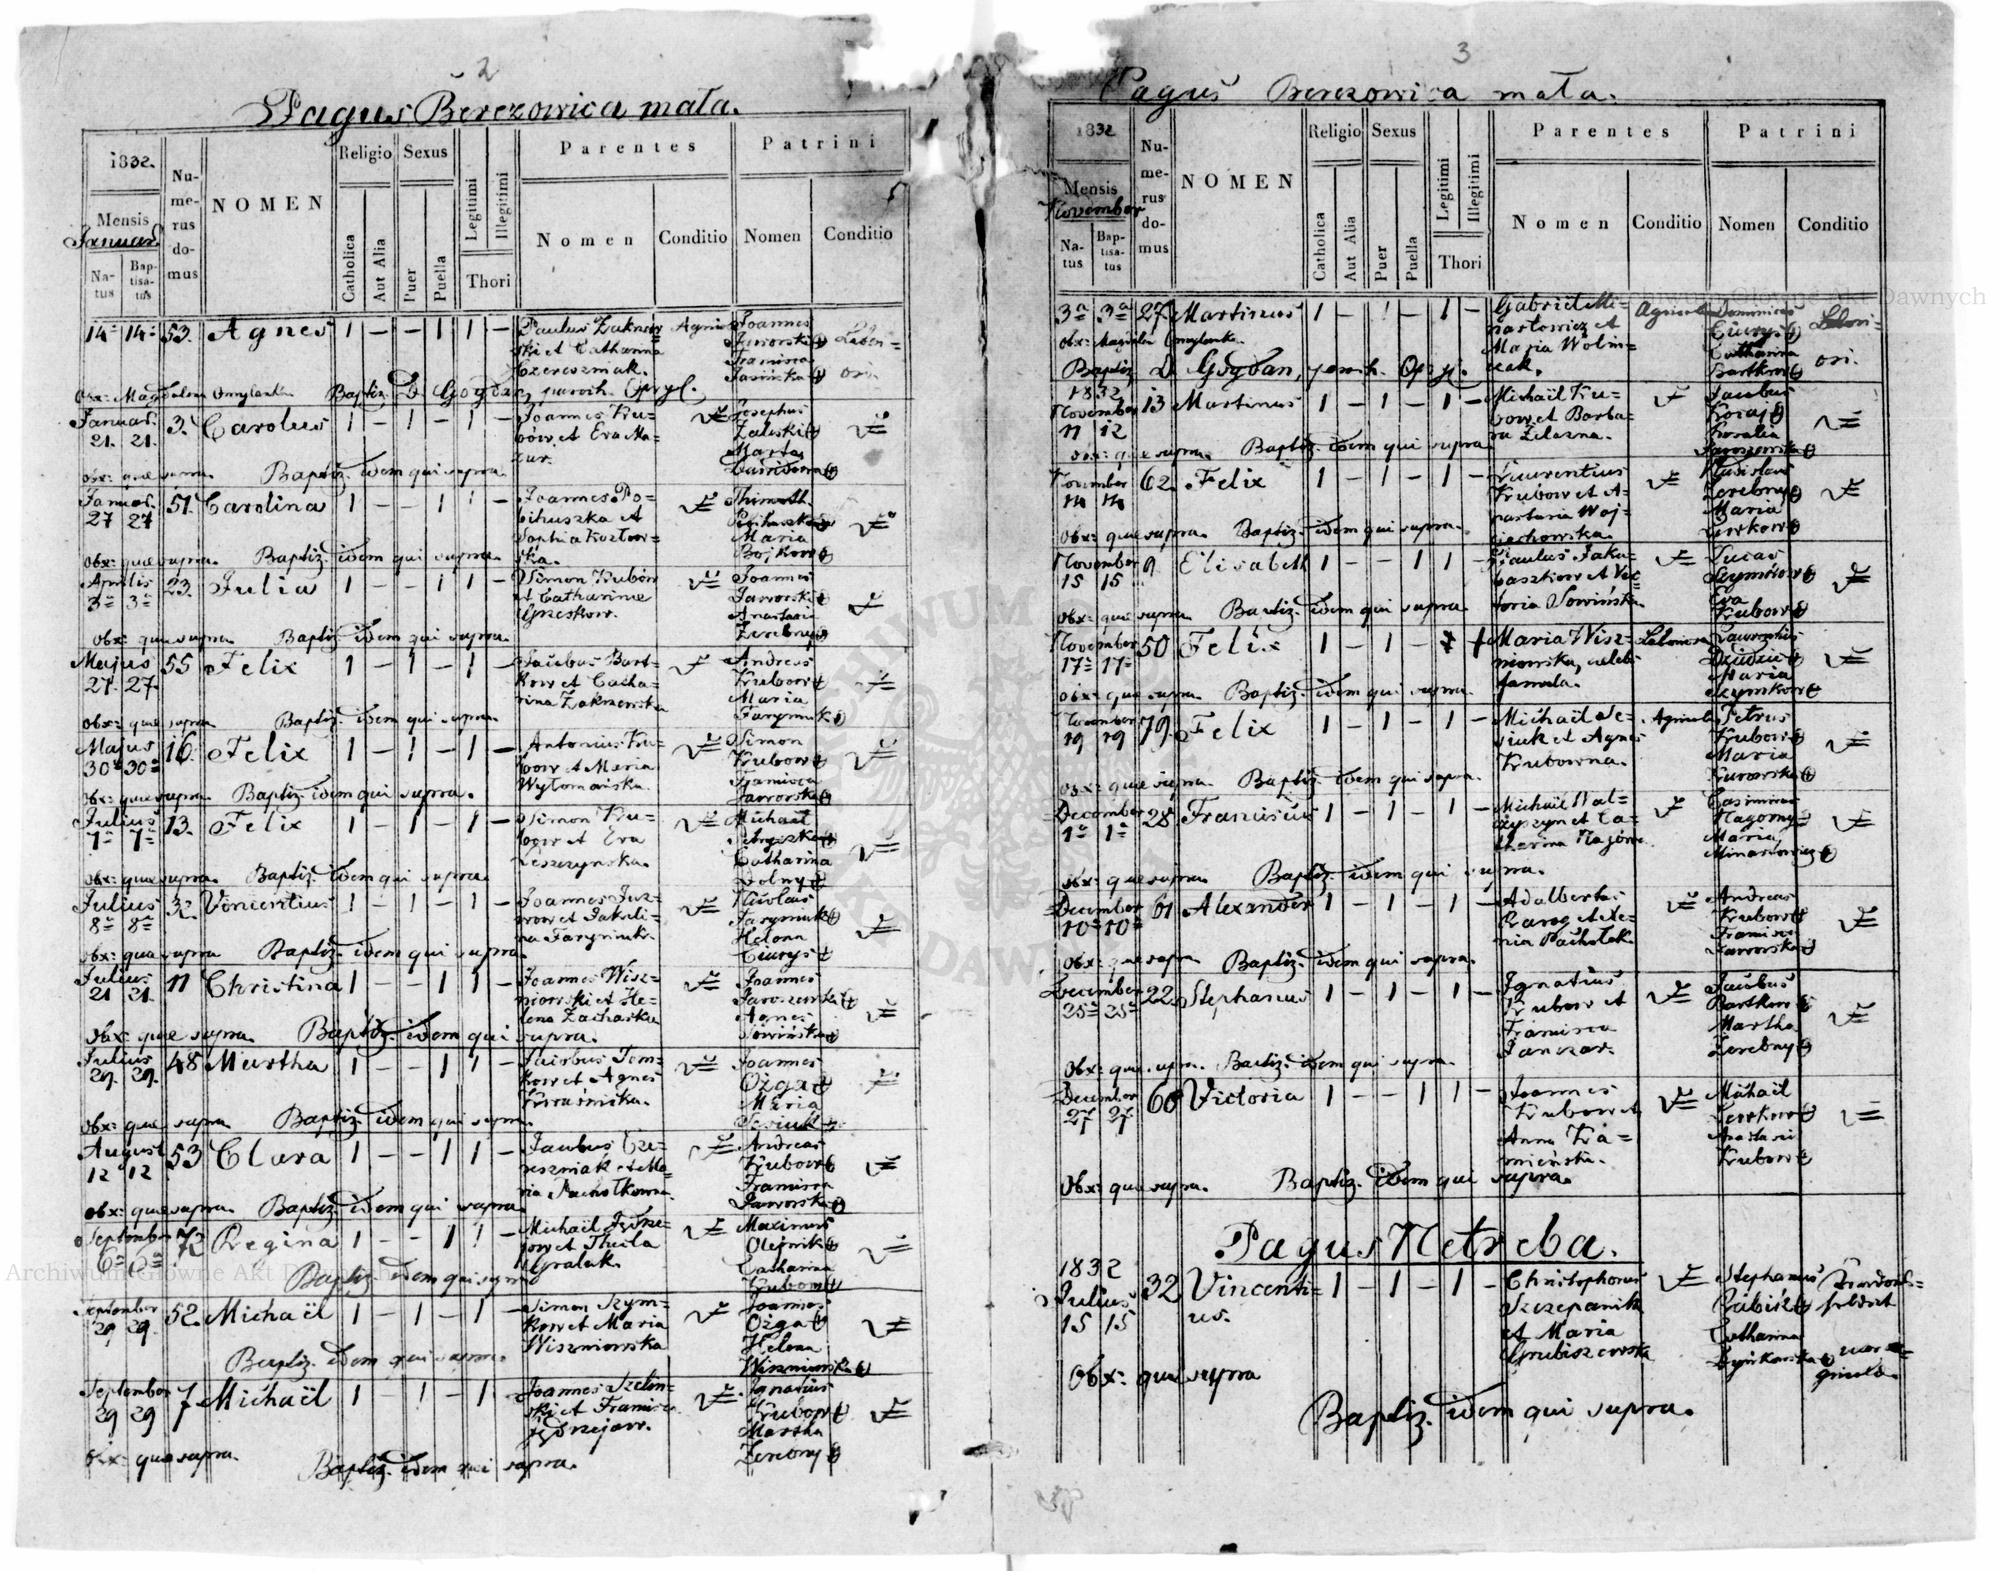 2
Pagus Berezowica mała.
1832.
Mensis
Januar.
Na-
tus
Bap-
tisa-
tus
Nu-
me-
rus
do-
mus
NOMEN
Religio
Catholica
Aut Alia
Sexus
Puer
Puella
Legitimi
Illegitimi
Thori
Parentes
Nomen
Conditio
Patrini
Nomen
Conditio
14 14 53. Agnes 1 – – 1 1 –
Paulus
ski et Catharina
Czereszniak.
Joannes
Jaworski
Francisca
Jasińska
Obx: Magdalena Omylanka Baptiz. D. Gogban, paroch. Opryl.
Januar.
21. 21. 3. Carolus 1 – 1 – 1 –
Joannes Kru=
bow et Eva Ma=
zur.
Josephus
Zaleski
Marta
obx: quae supra. Baptiz. idem qui supra.
Januar.
27 27 51. Carolina 1 – – 1 1 –
Joannes Po=
bihuszka et
Sophia Kozłow=
ska.
Maria
Bojkow
obx: quae supra. Baptiz. idem qui supra.
Aprilis
3 3 23. Julia 1 – – 1 1 –
Simon Krubow
et Catharina
Greskow.
Joannes
Jaworski
Anastasia
Zerebny
obx: quae supra Baptiz. idem qui supra.
Majus
27. 27. 55 Felix 1 – 1 – 1 –
Jacobus Bart=
kow et Catha=
rina Zakrzewska
Andreas
Krubow
Maria
Faryniuk
obx: quae supra. Baptiz. idem qui supra.
Majus
30 30 16. Felix 1 – 1 – 1 –
Antonius Kru=
bow et Maria
Simon
Krubow
Francisca
Jaworska
obx: quae supra. Baptiz. idem qui supra.
Julius
1 1 13. Felix 1 – 1 – 1 –
Simon Kru=
bow et Eva
Leszczynska.
Michael
Catharina
Dolny
obx: quae supra. Baptiz. idem qui supra.
Julius
8 8 32. Vincentius 1 – 1 – 1 –
Joannes
na Faryniuk.
Nicolaus
Faryniuk
Helena
Ciurys
obx: quae supra Baptiz. idem qui supra.
Julius
21 21. 11 Christina 1 – – 1 1 –
Joannes Wisz=
niowski et He=
lena Zacharko
Joannes
Jaroszewski
Agnes
Sowińska
Obx: quae supra. Baptiz. idem qui supra.
Julius
29. 29. 48 Martha 1 – – 1 1 –
Jacobus Tom=
kow et Agnes
Joannes
Ożga
Maria
obx: quae supra. Baptiz. idem qui supra.
August
12 12 53 Clara 1 – – 1 1 –
Jacobus Cze=
reszniak et Ma=
ria Pachołkowna.
Andreas
Krubow
Francisca
Jaworska
obx: quae supra. Baptiz. idem qui supra.
September
6 6 72 Regina 1 – – 1 1 –
Michaël Jędrze=
jow et Thecla
Gralak.
Maximus
Olejnik
Catharina
Krubow
Baptiz. idem qui supra
September
29 29. 52. Michaël 1 – 1 – 1 –
Simon Szym=
kow et Maria
Wiszniowska
Joannes
Ożga
Helena
Wiszniowska
Baptiz. idem qui supra.
September
29 29 7 Michaël 1 – 1 – 1 –
Joannes Szelin=
ski et Francisca
Jędrzejow.
Ignatius
Krubow
Martha
Zerebny
obx: quae supra. Baptiz. idem qui supra.
3
Pagus Berezowica mała.
1832
Mensis
November
Na-
tus
Bap-
tisa-
tus
Nu-
me-
rus
do-
mus
NOMEN
Religio
Catholica
Aut Alia
Sexus
Puer
Puella
Legitimi
Illegitimi
Thori
Parentes
Nomen
Conditio
Patrini
Nomen
Conditio
3 3 27 Martinus 1 – 1 – 1 –
Gabriel Mi=
nartowicz et
Maria Wolin=
czak.
Agricola
Dominicus
Ciurys
Catharina
Bartkow
Labori=
osi.
obx: Magdalena Omylanka.
Baptiz. D. Gogban, paroch. Opryl.
1832
November
11 12 13 Martinus 1 – 1 – 1 –
Michaël Kru=
bow et Barba=
ra Zelazna.
Jacobus
Koraj
Rosalia
Jaroszewska
obx: quae supra Baptiz. idem qui supra
November
62. Felix 1 – 1 – 1 –
Laurentius
Krubow et A=
nastasia Woj=
ciechowska.
Zerebny
Maria
Lewkow
obx: quae supra. Baptiz. idem qui supra.
November
15 15 9 Elisabeth 1 – – 1 1 –
Paulus Jaku=
baszkow et Vic=
toria Sowińska
Lucas
Szymkow
Eva
Krubow
obx: quae supra Baptiz. idem qui supra.
November
17 17 50 Felix 1 – 1 –
Maria Wisz=
niowska, caelebs
famula.
Laurentius
Maria
Szymkow
obx: quae supra. Baptiz. idem qui supra.
November
19 19 79. Felix 1 – 1 – 1 –
Michaël Se=
niuk et Agnes
Krubowna.
Agricola
Petrus
Krubow
Maria
obx: quae supra. Baptiz. idem qui supra.
December
1 1 28 Franciscus 1 – 1 – 1 –
Michaël Wal=
czyszyn et Ca=
tharina
Casimirus
Nagorny
Maria
Minartowicz
obx: quae supra. Baptiz. idem qui supra.
December
10 10 61 Alexander 1 – 1 – 1 –
Adalbertus
nia Pachołek.
Andreas
Krubow
Francisca
Jaworska
obx: quae supra Baptiz. idem qui supra.
December
25 25 22. Stephanus 1 – 1 – 1 –
Ignatius
Krubow et
Francisca
Janczar.
Jacobus
Bartkow
Martha
Zerebny
obx: quae supra. Baptiz. idem qui supra.
December
27 27 60 Victoria 1 – – 1 1 –
Joannes
Krubow et
Anna Ka=
mieńska.
Michaël
Lewkow
Anastasia
Krubow
obx: quae supra. Baptiz. idem qui supra.
Pagus Netreba.
1832
Julius
15 15 32 Vincenti=
us. 1 – 1 – 1 –
Christophorus
Szczepanik
et Maria
Grubiszewska
Stephanus
Babisz
Catharina
Obx: quae supra
Baptiz. idem qui supra.
Archiwum Główne Akt Dawnych
Archiwum Główne Akt Dawnych